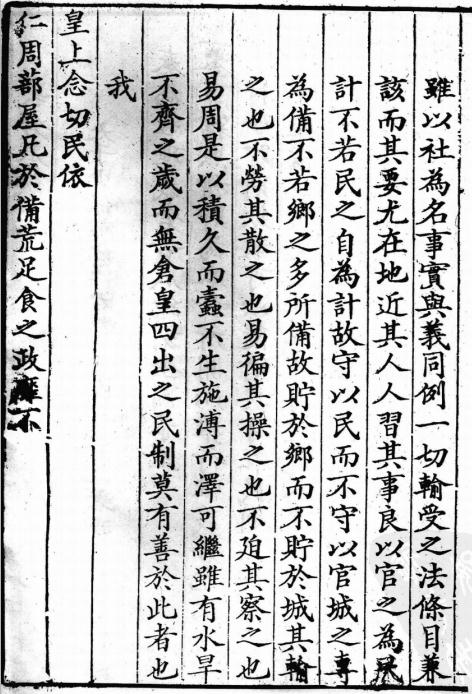 雖以社為名事實與義同例一切輸受之法條目兼
該而其要尤在地近其人人習其事良以官之為民
計不若民之自為計故守以民而不守以官城之專
為備不若鄉之多所備故貯於鄉而不貯於城其輸
之也不勞其散之也易徧其操之也不廹其察之也
易周是以積久而蠹不生施溥而澤可繼雖有水旱
不齊之歲而無倉皇四出之民制莫有善於此者也
我
皇上念切民依
仁周蔀屋凡於備荒足食之政靡不